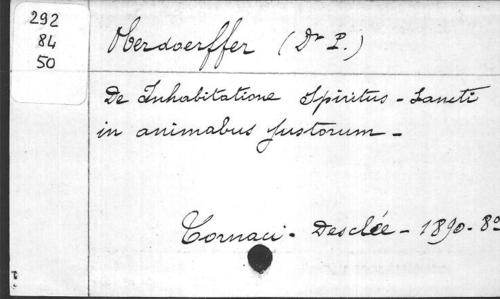 292
84
50
Oberdoerffer (Dr P.)
De Inhabitatione Spiritus-Sancti
in animabus justorum -
Tornaci - Desclée - 1890 - 8o